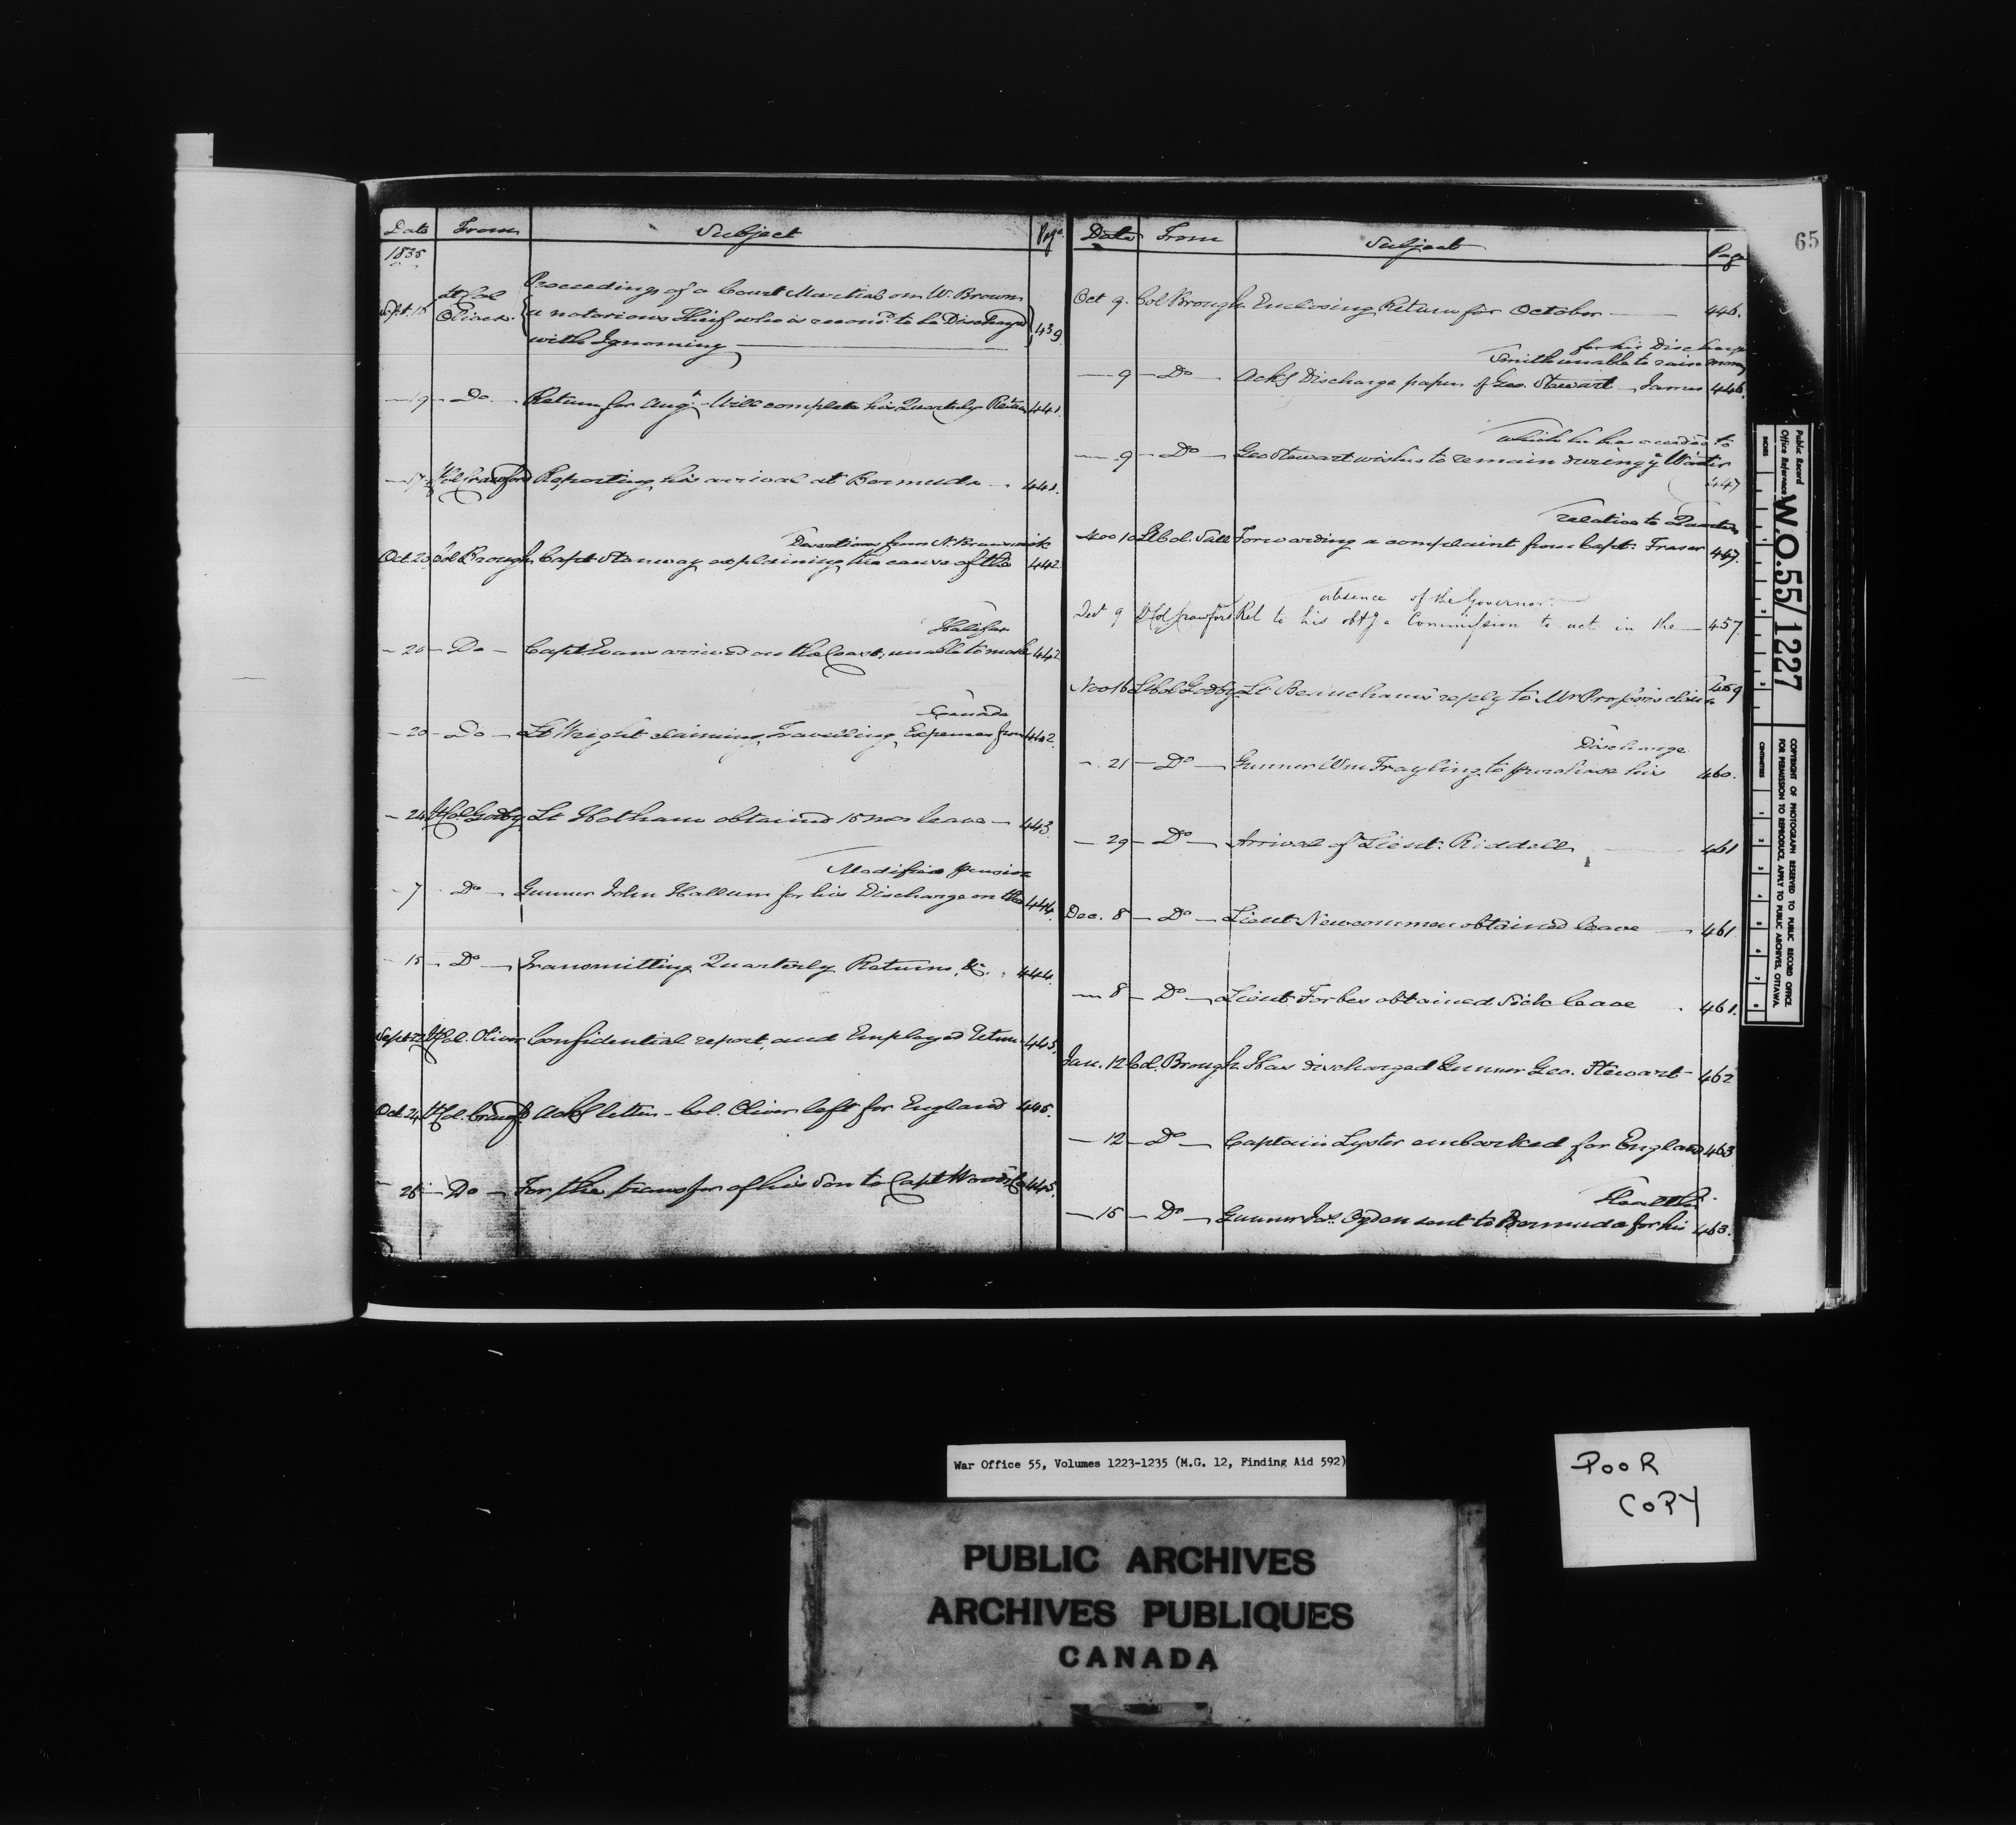 65
Date From Subject Page
1835
Sept. 15 Lt Col Oliver. Proceedings of a Court Martial on W. Brown
a notorious Thief who is recomd. to be Discharged
with Ignominy 439.
19 Do Return for Augt. Will complete his Quarterly Return 441.
17 Lt Col Crawford Reporting his arrival at Bermuda 441.
Desertions from N. Brunswick
Oct 20 Col Brough Capt Stanway explaining the cause of the 442
Halifax
20 Do Capt Evans arrived on the Coast, unable to make 442
Canada
20 Do Lt Wright claiming Travelling Expenses from 442.
24 Lt Col Godby Lt Hotham obtained 15 mos leave 443
Modified pension
7 Do Gunner John Hallum for his Discharge on the 444.
15 Do Transmitting Quarterly Returns, &c. 444.
Sept 22 Lt Col. Oliver Confidential report, and Employed Return 445.
Oct 24 Lt Col. Crawfd. Ackg letter - Col. Oliver left for England 445.
26 Do For the transfer of his Son to Capt Wood's Co 445.
Date From Subject Page
Oct 9. Col Brough Enclosing Return for October 446.
for his Discharge
Smith unable to raise money
9 Do Ackg Discharge papers of Geo. Stewart James 446.
which he has acceded to
9 Do Geo Stewart wishes to remain during ye Winter
447
relative to Quarters
Nov 10 Lt Col. Sall Forwarding a complaint from Capt. Fraser 447.
absence of the Governor.
Oct 9 Lt Col Crawford Rel to his obtg a Commission to act in the 457.
Nov 16 Lt Col Godby Lt Beaucham's reply to Mr claim 459
Discharge
21 Do Gunner Wm Frayling to purchase his 460.
29 Do Arrival of Lieut. Riddell 461
Dec. 8 Do Lieut Newcommen obtained leave 461
8 Do Lieut Forbes obtained Sick leave 461.
Jan. 12 Col. Brough Has discharged Gunner Geo. Stewart 462
12 Do Captain Lyster embarked for England 463
Health
15 Do Gunner Jas. Ogden sent to Bermuda for his 463.
Public Record
Office Reference
W.O.55/1227
INCHES
CENTIMETRES
COPYRIGHT OF PHOTOGRAPH RESERVED TO PUBLIC RECORD OFFICE.
FOR PERMISSION TO REPRODUCE, APPLY TO PUBLIC ARCHIVES, OTTAWA.
War Office 55, Volumes 1223-1235 (M.G. 12, Finding Aid 592)
POOR
COPY
PUBLIC ARCHIVES
ARCHIVES PUBLIQUES
CANADA